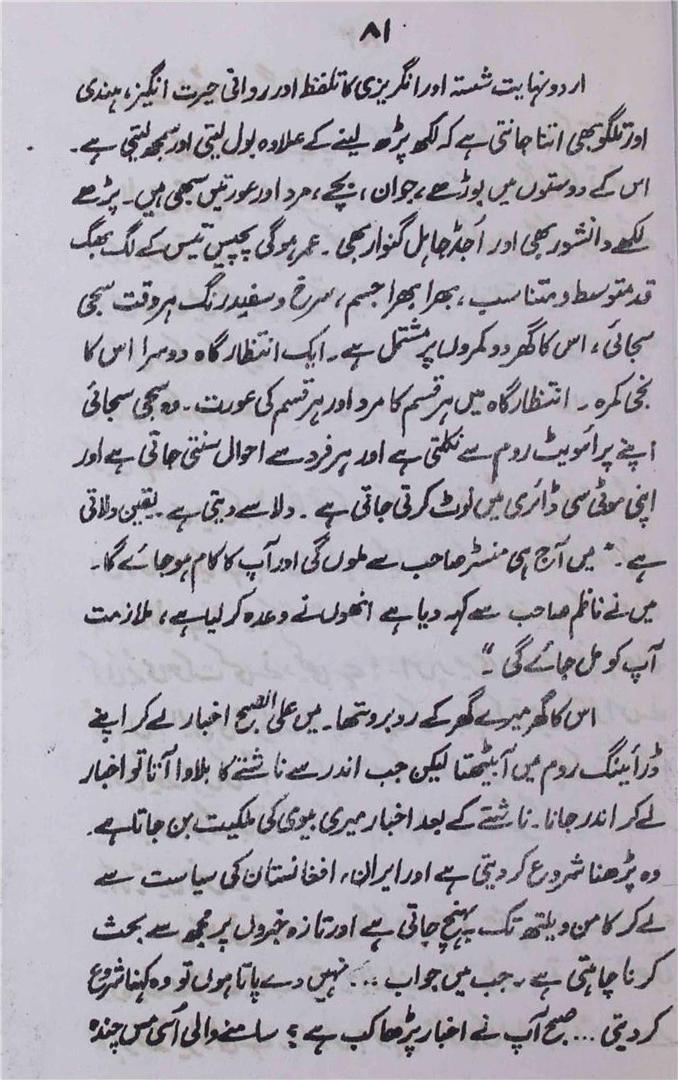 ۸۱
اردو نہایت شستہ اور انگریزی کا تلفظ اور روانی حیرت انگیز، ہندی
اور تلگو بھی اتنا جانتی ہے کہ لکھ پڑھ لینے کے علاوہ بول لیتی اور سمجھ لیتی ہے۔
اس کے دوستوں میں بوڑھے، جوان، بچے، مرد اور عورتیں سبھی ہیں۔ پڑھے
لکھے دانشور بھی اور اُجڈ جاہل گنوار بھی۔ عمر ہوگی پچیس تیس کے لگ بھگ
قد متوسط و متناسب، بھرا بھرا جسم، سرخ و سفید رنگ ہر وقت سجی
سجائی، اس کا گھر دو کمروں پر مشتمل ہے۔ ایک انتظار گاہ دوسرا اس کا
نجی کمرہ۔ انتظار گاہ میں ہر قسم کا مرد اور ہر قسم کی عورت۔ وہ سجی سجائی
اپنے پرائویٹ روم سے نکلتی ہے اور ہر فرد سے احوال سنتی جاتی ہے اور
اپنی موٹی سی ڈائری میں نوٹ کرتی جاتی ہے۔ دلاسے دیتی ہے۔ یقین دلاتی
ہے۔ "میں آج ہی منسٹر صاحب سے ملوں گی اور آپ کا کام ہوجائے گا۔
میں نے ناظم صاحب سے کہہ دیا ہے انھوں نے وعدہ کر لیا ہے، ملازمت
آپ کو مل جائے گی۔"
اس کا گھر میرے گھر کے روبرو تھا۔ میں علی الصبح اخبار لے کر اپنے
ڈرائینگ روم میں آبیٹھتا لیکن جب اندر سے ناشتے کا بلاوا آتا تو اخبار
لے کر اندر جاتا۔ ناشتے کے بعد اخبار میری بیوی کی ملکیت بن جاتا ہے۔
وہ پڑھنا شروع کر دیتی ہے اور ایران، افغانستان کی سیاست سے
لے کر کامن ویلتھ تک پہنچ جاتی ہے اور تازہ خبروں پر مجھ سے بحث
کرنا چاہتی ہے۔ جب میں جواب ... نہیں دے پاتا ہوں تو وہ کہنا شروع
کر دیتی ... صبح آپ نے اخبار پڑھا کب ہے؟ سامنے والی اُسی مس چندہ